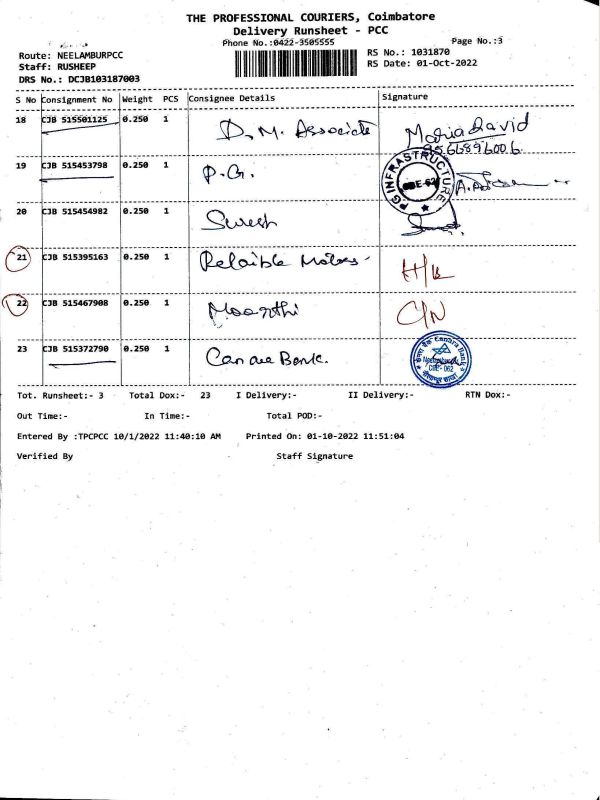 THE PROFESSIONAL COURIERS, Coimbatore
Delivery Runsheet - PCC
Phone No.:0422-3505555 Page No.:3
Route: NEELAMBURPCC RS No.: 1031870
Staff: RUSHEEP RS Date: 01-Oct-2022
DRS No.: DCJB103187003
S No Consignment No Weight PCS Consignee Details Signature
18 CJB 515501125 0.250 1 D.M. Associate Maria David
19 CJB 515453798 0.250 1 P.G. PG INFRASTRUCTURE
20 CJB 515454982 0.250 1 Suresh
21 CJB 515395163 0.250 1 Relaible Motors
22 CJB 515467908 0.250 1 Moorthi C/N
23 CJB 515372790 0.250 1 Canara Bank. Canara Bank
CBE - 062
Tot. Runsheet:- 3 Total Dox:- 23 I Delivery:- II Delivery:- RTN Dox:-
Out Time:- In Time:- Total POD:-
Entered By :TPCPCC 10/1/2022 11:40:10 AM Printed On: 01-10-2022 11:51:04
Verified By Staff Signature